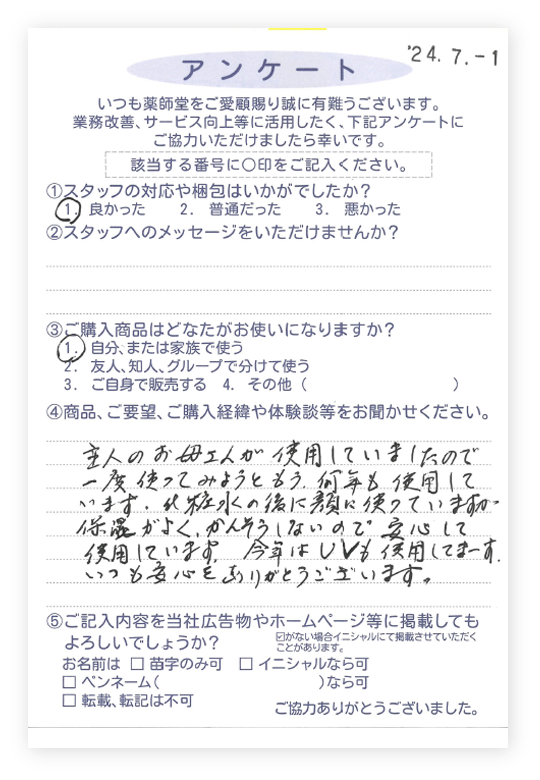 '24.7.-1
アンケート
いつも薬師堂をご愛顧賜り誠に有難うございます。
業務改善、サービス向上等に活用したく、下記アンケートに
ご協力いただけましたら幸いです。
該当する番号に〇印をご記入ください。
①スタッフの対応や梱包はいかがでしたか?
1. 良かった 2. 普通だった 3. 悪かった
②スタッフへのメッセージをいただけませんか?
③ご購入商品はどなたがお使いになりますか?
1. 自分、または家族で使う
2. 友人、知人、グループで分けて使う
3. ご自身で販売する 4. その他( )
④商品、ご要望、ご購入経緯や体験談等をお聞かせください。
主人のお母さんが使用していましたので
一度使ってみようともう、何年も使用して
います。化粧水の後に顔に使っていますが
保湿がよく、かんそうしないので安心して
使用しています。今年はUVも使用してまーす。
いつも安心をありがとうございます。
⑤ご記入内容を当社広告物やホームページ等に掲載しても
よろしいでしょうか?
☑がない場合イニシャルにて掲載させていただく
ことがあります。
お名前は □ 苗字のみ可 □ イニシャルなら可
□ ペンネーム( )なら可
□ 転載、転記は不可
ご協力ありがとうございました。